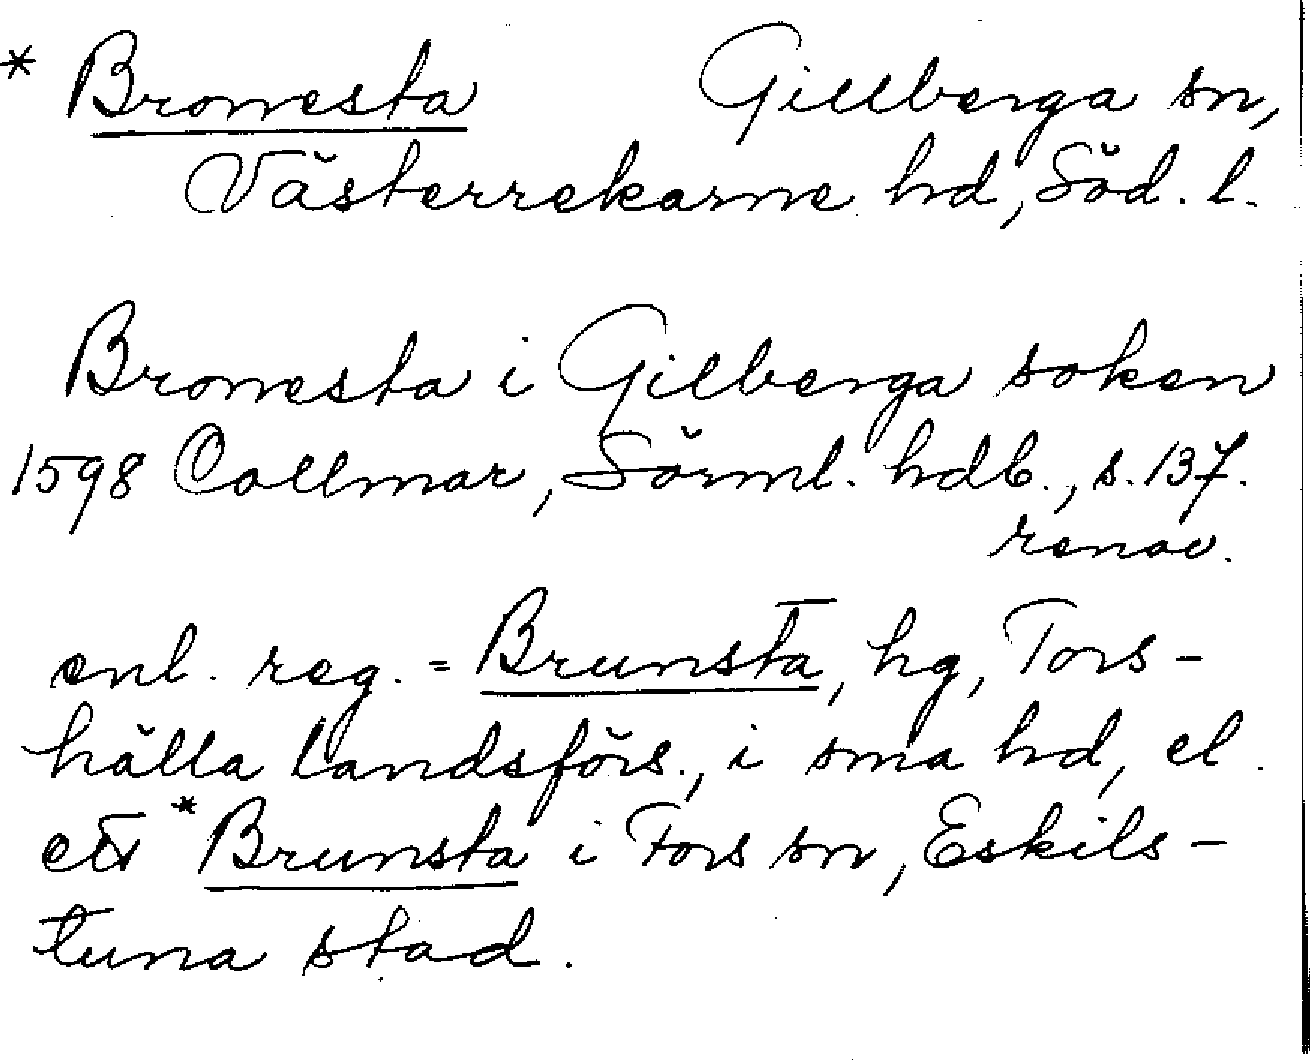 * Bronesta Gillberga sn,
Västerrekarne hd, Söd. l.
Bronesta i Gilberga soken
1598 Collmar, Sörml. hdl., s. 137.
renov.
enl. reg. = Brunsta, hg, Tors-
hälla landsförs., i sma hd, el.
ett *Brunsta i Fors sn, Eskils-
tuna stad.